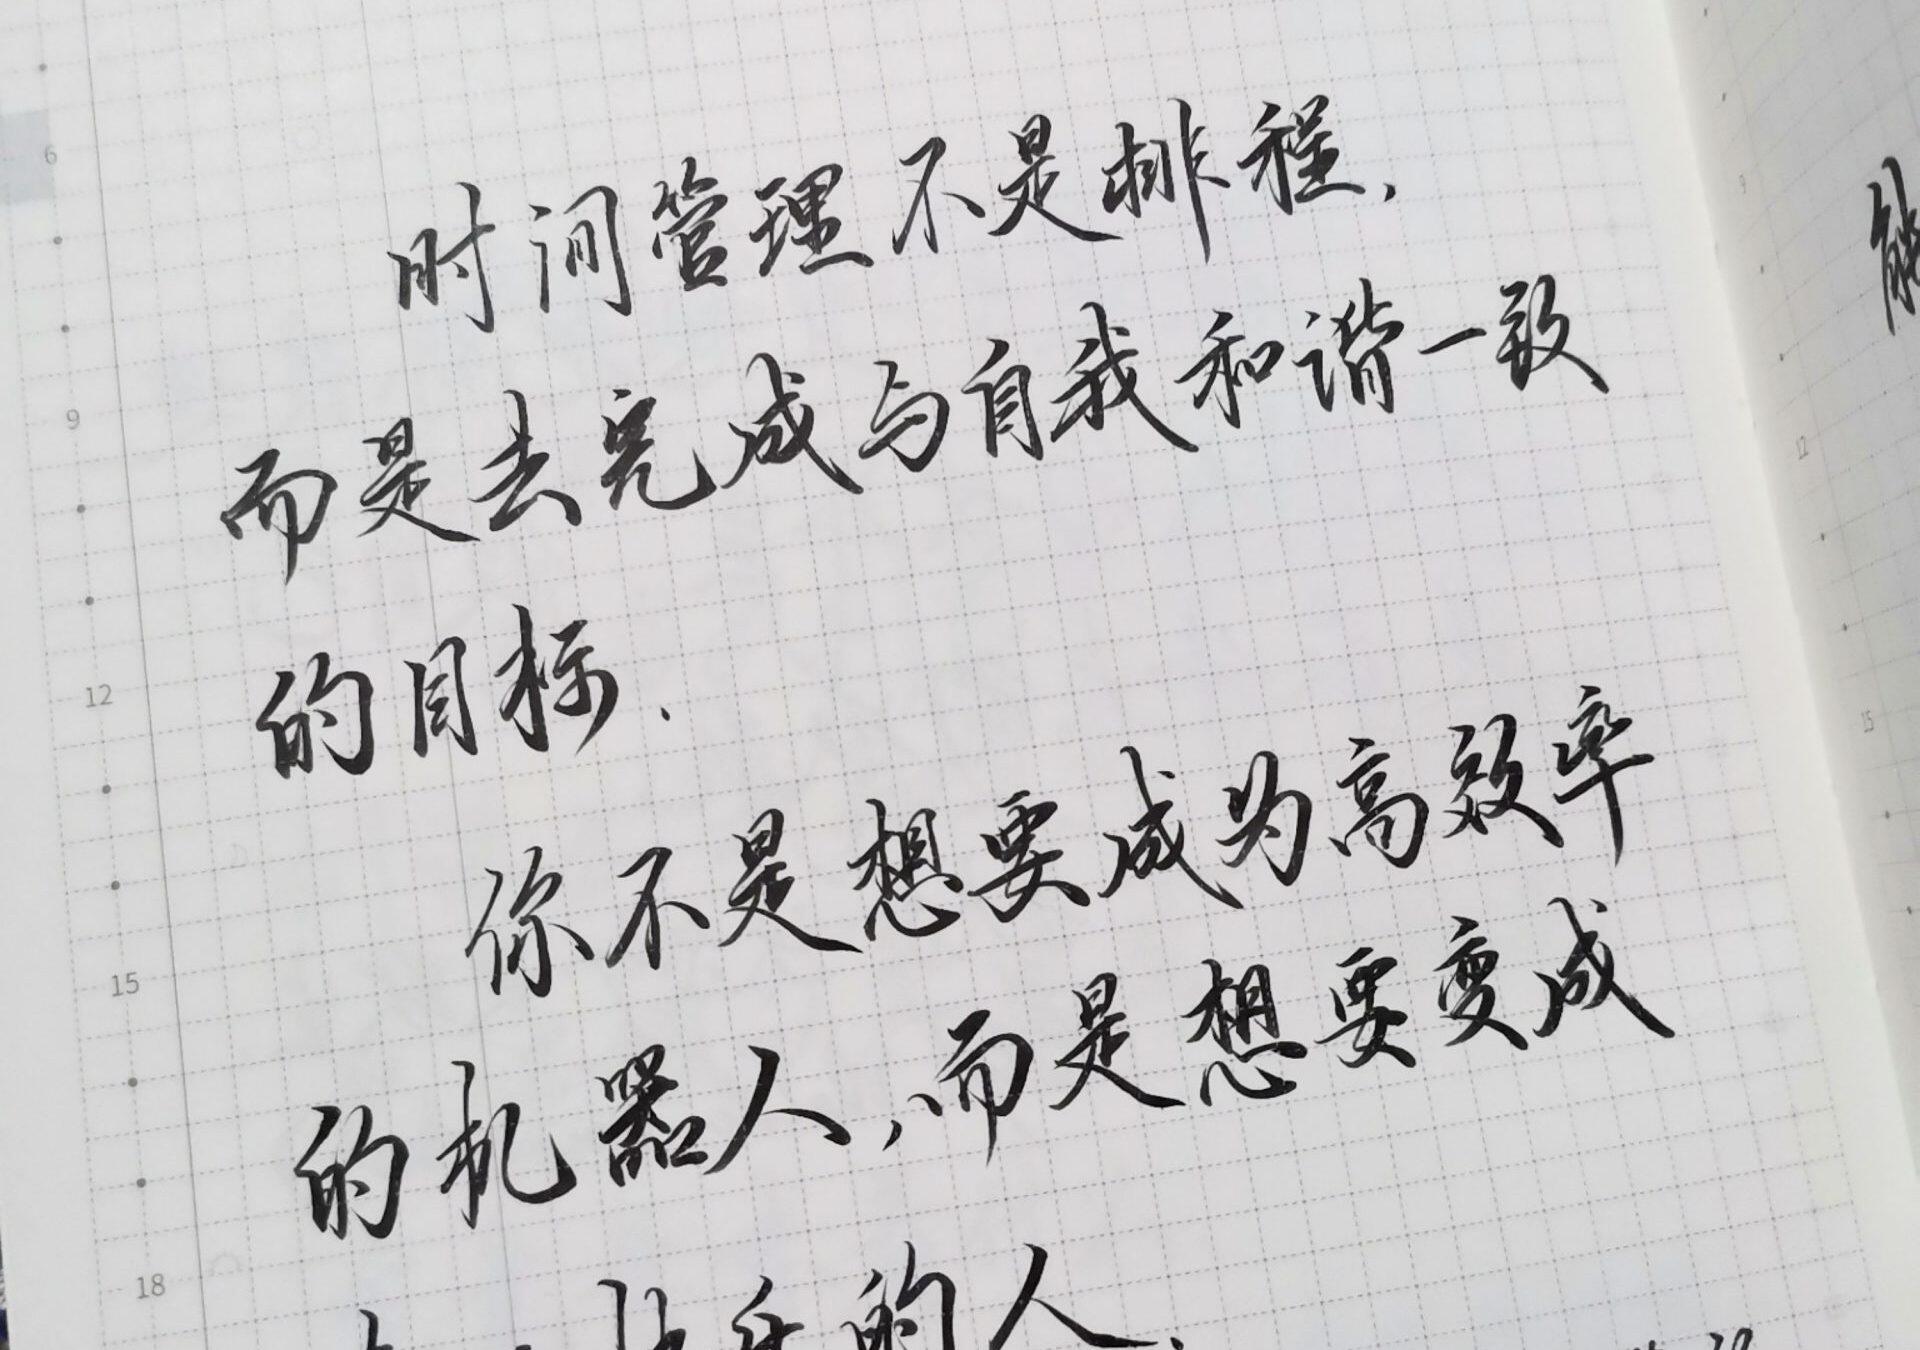 时间管理不是排程,
而是去完成与自我和谐一致
的目标.
你不是想要成为高效率
的机器人,而是想要变成
的人.
能
6
9
12
15
18
9
12
15